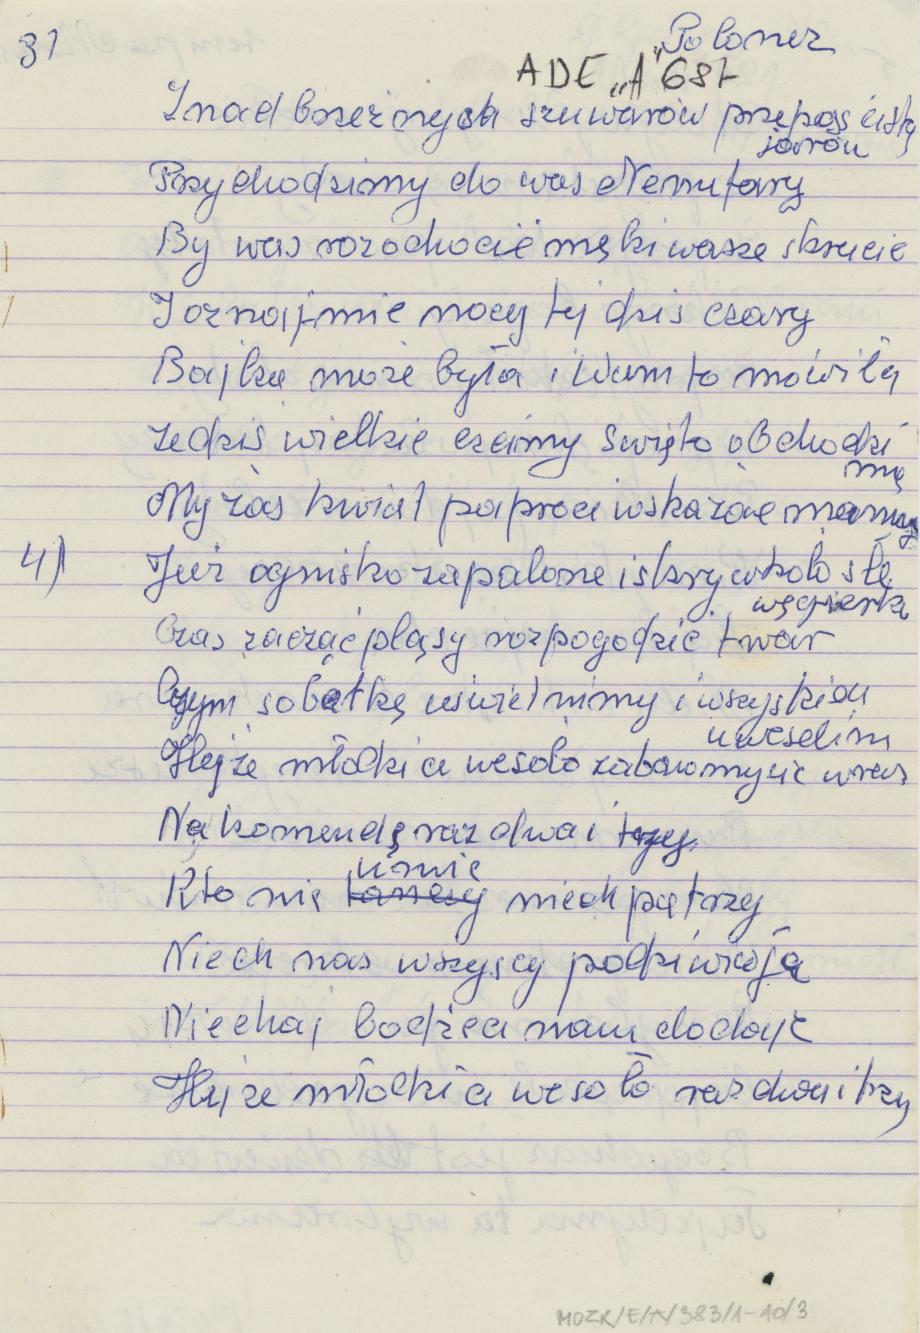 Polonez
3)
ADE „A" 687
I nad brzeżnych szuwarów przepaścisty
jarów
Przychodzimy do was Nenufary
By was rozochocić męki wasze skrucić
I oznajmić nocy tej dziś czary
Bajka może była i Wam to mówiła
że dziś wielkie czcimy święto obchodzi
my
My zaś kwiat paproci wskazać mamy
4) Już ognisko zapalone iskry wkoło się
węgierka
Czas zacząć pląsy rozpogodzić twarz
Czym sobótkę uświetnimy i wszyskich
uweselim
Hejże młodki a wesoło zabawmy się wraz
Na komendę raz dwa i trzy
umie
Kto nie tańczy niech patrzy
Niech nas wszyscy podziwiają
Niechaj bodźca nam dodają
Hejże młodki a wesoło raz dwa i trzy
MOZK/E/A/383/1-10/3